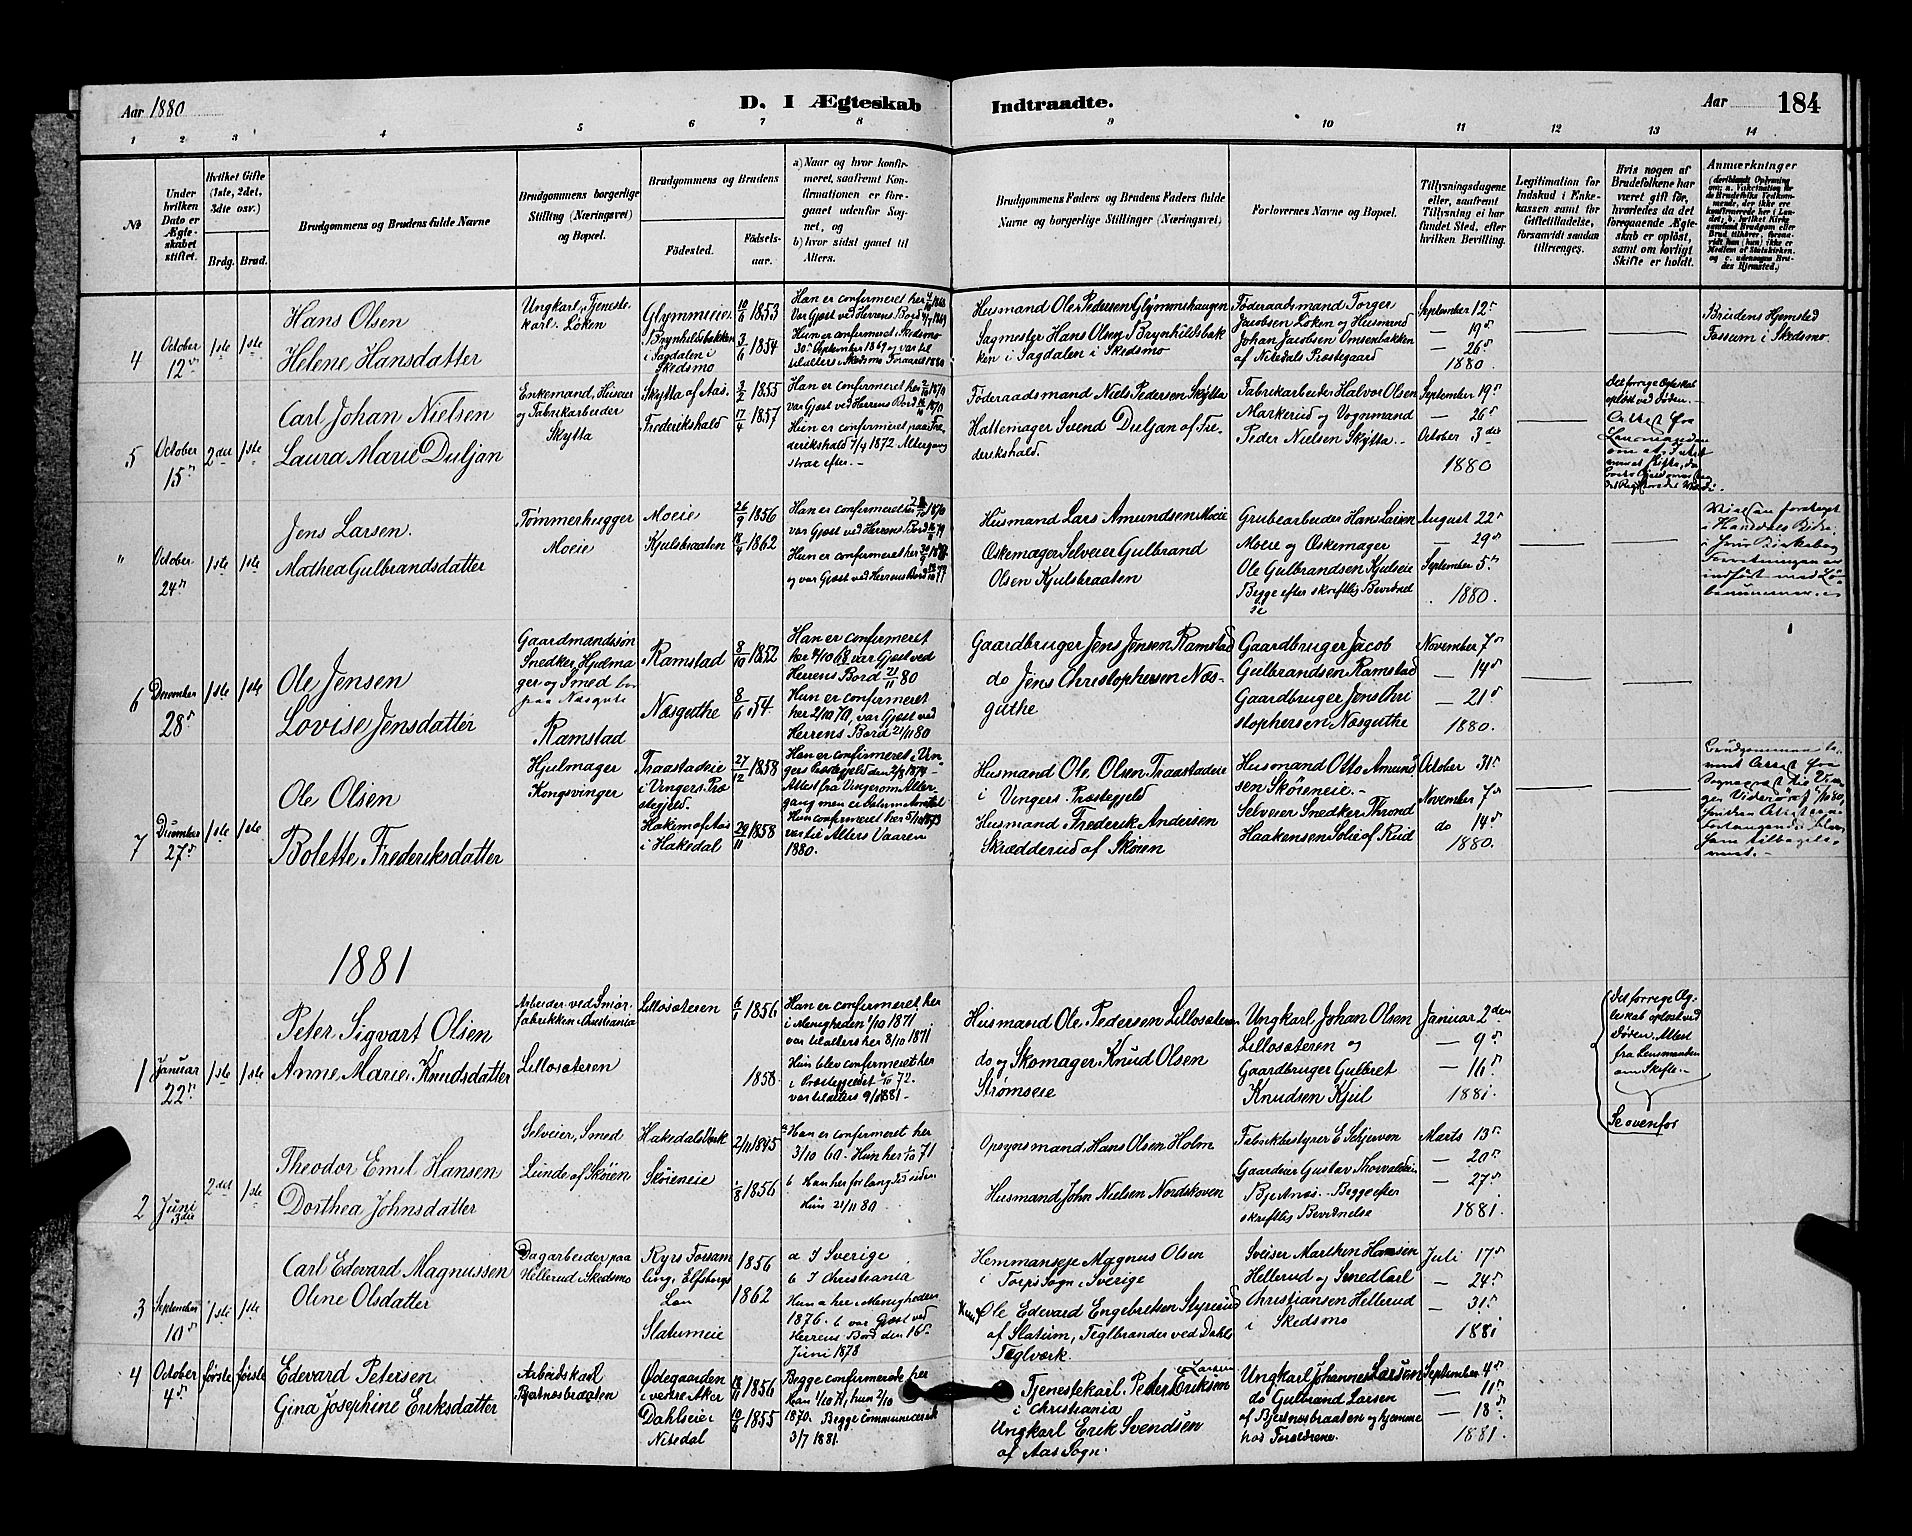 Aar 1880
D. I Ægteskab Indtraadte.
Aar 184
1 2 3 4 5 6 7 8 9 10 11 12 13 14
№
Under hvilken Dato er Ægteskabet stiftet.
Hvilket Gifte (1ste, 2det, 3die osv.)
Brdg. Brud.
Brudgommens og Brudens fulde Navne
Brudgommens borgerlige Stilling (Næringsvei) og Bopæl.
Brudgommens og Brudens
Födested.
Födselsaar.
a) Naar og hvor konfirmeret, saafremt Konfirmationen er foregaaet udenfor Sognet, og
b) hvor sidst gaaet til Alters.
Brudgommens Faders og Brudens Faders fulde Navne og borgerlige Stillinger (Næringsvei).
Forlovernes Navne og Bopæl.
Tillysningsdagene eller, saafremt Tillysning ei har fundet Sted, efter hvilken Bevilling.
Legitimation for Indskud i Enkekassen samt for Giftetilladelse, forsaavidt saadan tiltrænges.
Hvis nogen af Brudefolkene har været gift før, hvorledes da det foregaaende Ægteskab er oplöst, samt om lovligt Skifte er holdt.
Anmærkninger
4
October
12te
1ste 1ste
Hans Olsen
Helene Hansdatter
Ungkarl, Tjenestekarl. Løken
Glymmeie
Brynhildsbakken i Sagdalen i Skedsmo
10/6 1853
3/6 1854
Han er confirmeret her
Var Gjæst ved Herrens Bord
Hun er confirmeret i Skedsmo
30te September 1869 og var til
Husmand Ole Pedersen Glymmshaugen
Sagmester Hans Olsen Brynhildsbakken i Sagdalen i Skedsmo
Föderaadsmand Torger
Jacobsen Löken og Husmand
Johan Jacobsen Omsenbakken
af Nitedals Præstegaard
September 12te
— 19de
— 26de
1880
Brudens Hjemsted
Fossum i Skedsmo
5
October
15de
2det 1ste
Carl Johan Nielsen
Laura Marie Duljan
Enkemand, Huseier
og Fabrikarbeider
Skytta
Skytta af Aas.
Frederikshald
3/2 1855
17/4 1857
Han er confirmeret her
var Gjæst ved Herrens Bord
Hun er confirmeret paa Frederikshald 7/4 1872. Altergang
strax efter.
Föderaadsmand Niels Pedersen Skytta
Hattemager Svend Duljan af Frederikshald.
Fabrikarbeider Halvor Olsen
Markerud og Vognmand
Peder Nielsen Skytta.
September 19de
— 26de
October 3die
1880
Det forrige Ægteskab
oplöst ved Döden.
Attest fra
Lensmanden
"
October
24de
1ste 1ste
Jens Larsen.
Mathea Gulbrandsdatter
Tømmerhugger
Moeie
Moeie
Kjulsbraaten
26/9 1856
18/4 1862
Han er confirmeret
var Gjæst ved Herrens Bord
Hun er confirmeret her
og var Gjæst ved Herrens Bord
Husmand Lars Amundsen Moeie
Øskemager Selveier Gulbrand
Olsen Kjulsbraaten
Grubearbeider Hans Larsen
Moeie og Øskemager
Ole Gulbrandsen Kjulseie
Begge efter skriftlig Bevidnelse
August 22de
— 29de
September 5te
1880.
6
December
28de
1ste 1ste
Ole Jensen
Lovise Jensdatter
Gaardmandssön
Snedker, Hjulmager og Smed bor
paa Næsgute
Ramstad
Ramstad
Næsguthe
8/10 1852
8/6 54
Han er confirmeret
her 4/10 68 var Gjæst ved
Herrens Bord 21/11 80
Hun er confirmeret
her 2/10 70, var Gjæst ved
Herrens Bord 21/11 80
Gaardbruger Jens Jensen Ramstad
do Jens Christophersen Næsguthe
Gaardbruger Jacob
Gulbrandsen Ramstad
Gaardbruger Jens Christophersen Næsguthe
November 7de
— 14de
— 21de
1880.
7
December
27de
1ste 1ste
Ole Olsen
Bolette Frederiksdatter
Hjulmager
Kongsvinger
Traastadeie
i Vingers Præstegjeld.
Hakem af Aas
i Hakedal
27/12 1858
29/11 1858
Han er confirmeret i Vingers Præstegjeld den 2/8 1874
Attest fra Vinger om Altergang
Hun confirmeret her 5/10 1873
var til Alters Vaaren
1880.
Husmand Ole Olsen Traastadeie
i Vingers Præstegjeld
Husmand Frederik Andersen
Skrædderud af Skoien
Husmand Otto Amundsen Sköieneie.
Selveier Snedker Thrond
Haakensen Solie af Rud
October 31te
November 7de
do 14de
1880.
1881
1
Januar
22de
1ste 1ste
Peter Sigvart Olsen
Anne Marie Knudsdatter
Arbeider ved Smörfabrikken Christiania
Lillosæteren
Lillosæteren
6/1 1856
1858.
Han er confirmeret her
i Menigheden 1/10 1871
var til Alters her 8/10 1871
Hun blev confirmeret her
i Præstegjeldet 6/10 72.
var til alters 9/1 1881
Husmand Ole Pedersen Lillosæteren
do og Skomager Knud Olsen
Strømseie
Ungkarl Johan Olsen
Lillosæteren og
Gaardbruger Gulbret
Knudsen Kjul
Januar 2den
— 9de
— 16de
1881.
Det forrige Ægteskab oplöst ved
Döden, Attest
fra Lensmanden
om Skifte.
Se ovenfor
2
Juni
3die
2det 1ste
Theodor Emil Hansen
Dorthea Johnsdatter
Selveier, Smed
Lunde af Skøien
Hakedals Værk
Skøieneie
2/11 1845
1/8 1856
a Han er confirmeret her
3/10 60. Hun her 1/10 71
b Han her for lang Tid siden
Hun 21/11 80
Opsynsmand Hans Olsen Holm
Husmand John Nielsen Nordskoven
Fabrikbestyrer E Schjerven
Gaardeier Gustav Thorvaldsen
Bjertnæs. Begge efter
skriftlig Bevidnelse
Marts 13de
— 20de
— 27de
1881.
3
September
10de
1ste 1ste
Carl Edevard Magnussen
Oline Olsdatter
Dagarbeider paa
Hellerud i Skedsmo
Ryrs Forsamling, Elfsborgs
Lan
Slatumeie
1856
1862
a I Sverige
b I Christiania
Hun a her i Menigheden
1876. b var Gjæst ved
Herrens Bord den 16de
Juni 1878
Hemmanseje Magnus Olsen
i Torps Sogn i Sverige
Husm. Ole Edevard Engebretsen Styrerud
af Slatum, Teglbrænder ved Dahls
Teglværk.
Sveiser Marthen Hansen
Hellerud og Smed Carl
Christiansen Hellerud
i Skedsmo
Juli 17de
— 24de
— 31te
1881
4
October
4de
første første
Edevard Petersen
Gina Josephine Eriksdatter
Arbeidskarl
Bjertnæsbraaten
Ødegaarden
i vestre Aker
Dahlseie i
Nitedal
18/11 1856
10/6 1855
Begge confirmerede her
han 1/10 71, hun 2/10
1870. Begge communicerede
3/7 1881.
Tjenestekarl Peder Eriksen
Larsen
i Christiania
Ungkarl Erik Svendsen
af Aas Sogn.
Ungkarl Johannes Larsen
do Gulbrand Larsen
af Bjertnæsbraaten og hjemme
hos Forældrene.
September 4de
— 11te
— 18de
1881.